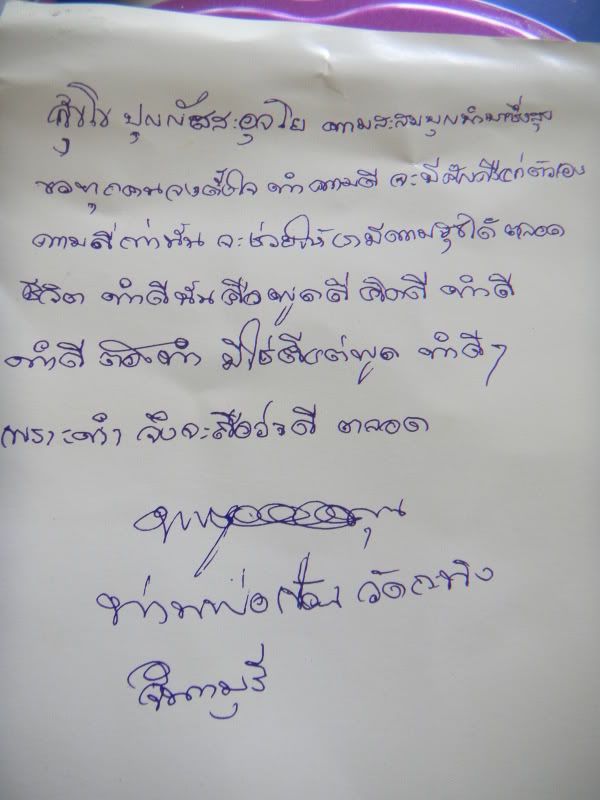 สุโข ปุญญัสสะ อุจจโย ความสะสมบุญนำมาซึ่งสุข
ขอทุกคนจงตั้งใจ ทำความดี จะมีดีแก่ตัวเอง
ความดีเท่านั้น จะช่วยให้เรามีความสุขได้ ตลอด
ชีวิต ทำดีนั้น คือพูดดี คิดดี ทำดี
ทำดี ต้องทำ มิใช่ดีแต่พูด ทำดีๆ
เพราะทำ จึงจะถือว่าดี ตลอด
ท่านพ่อ วัดกะทิง
จันทบุรี